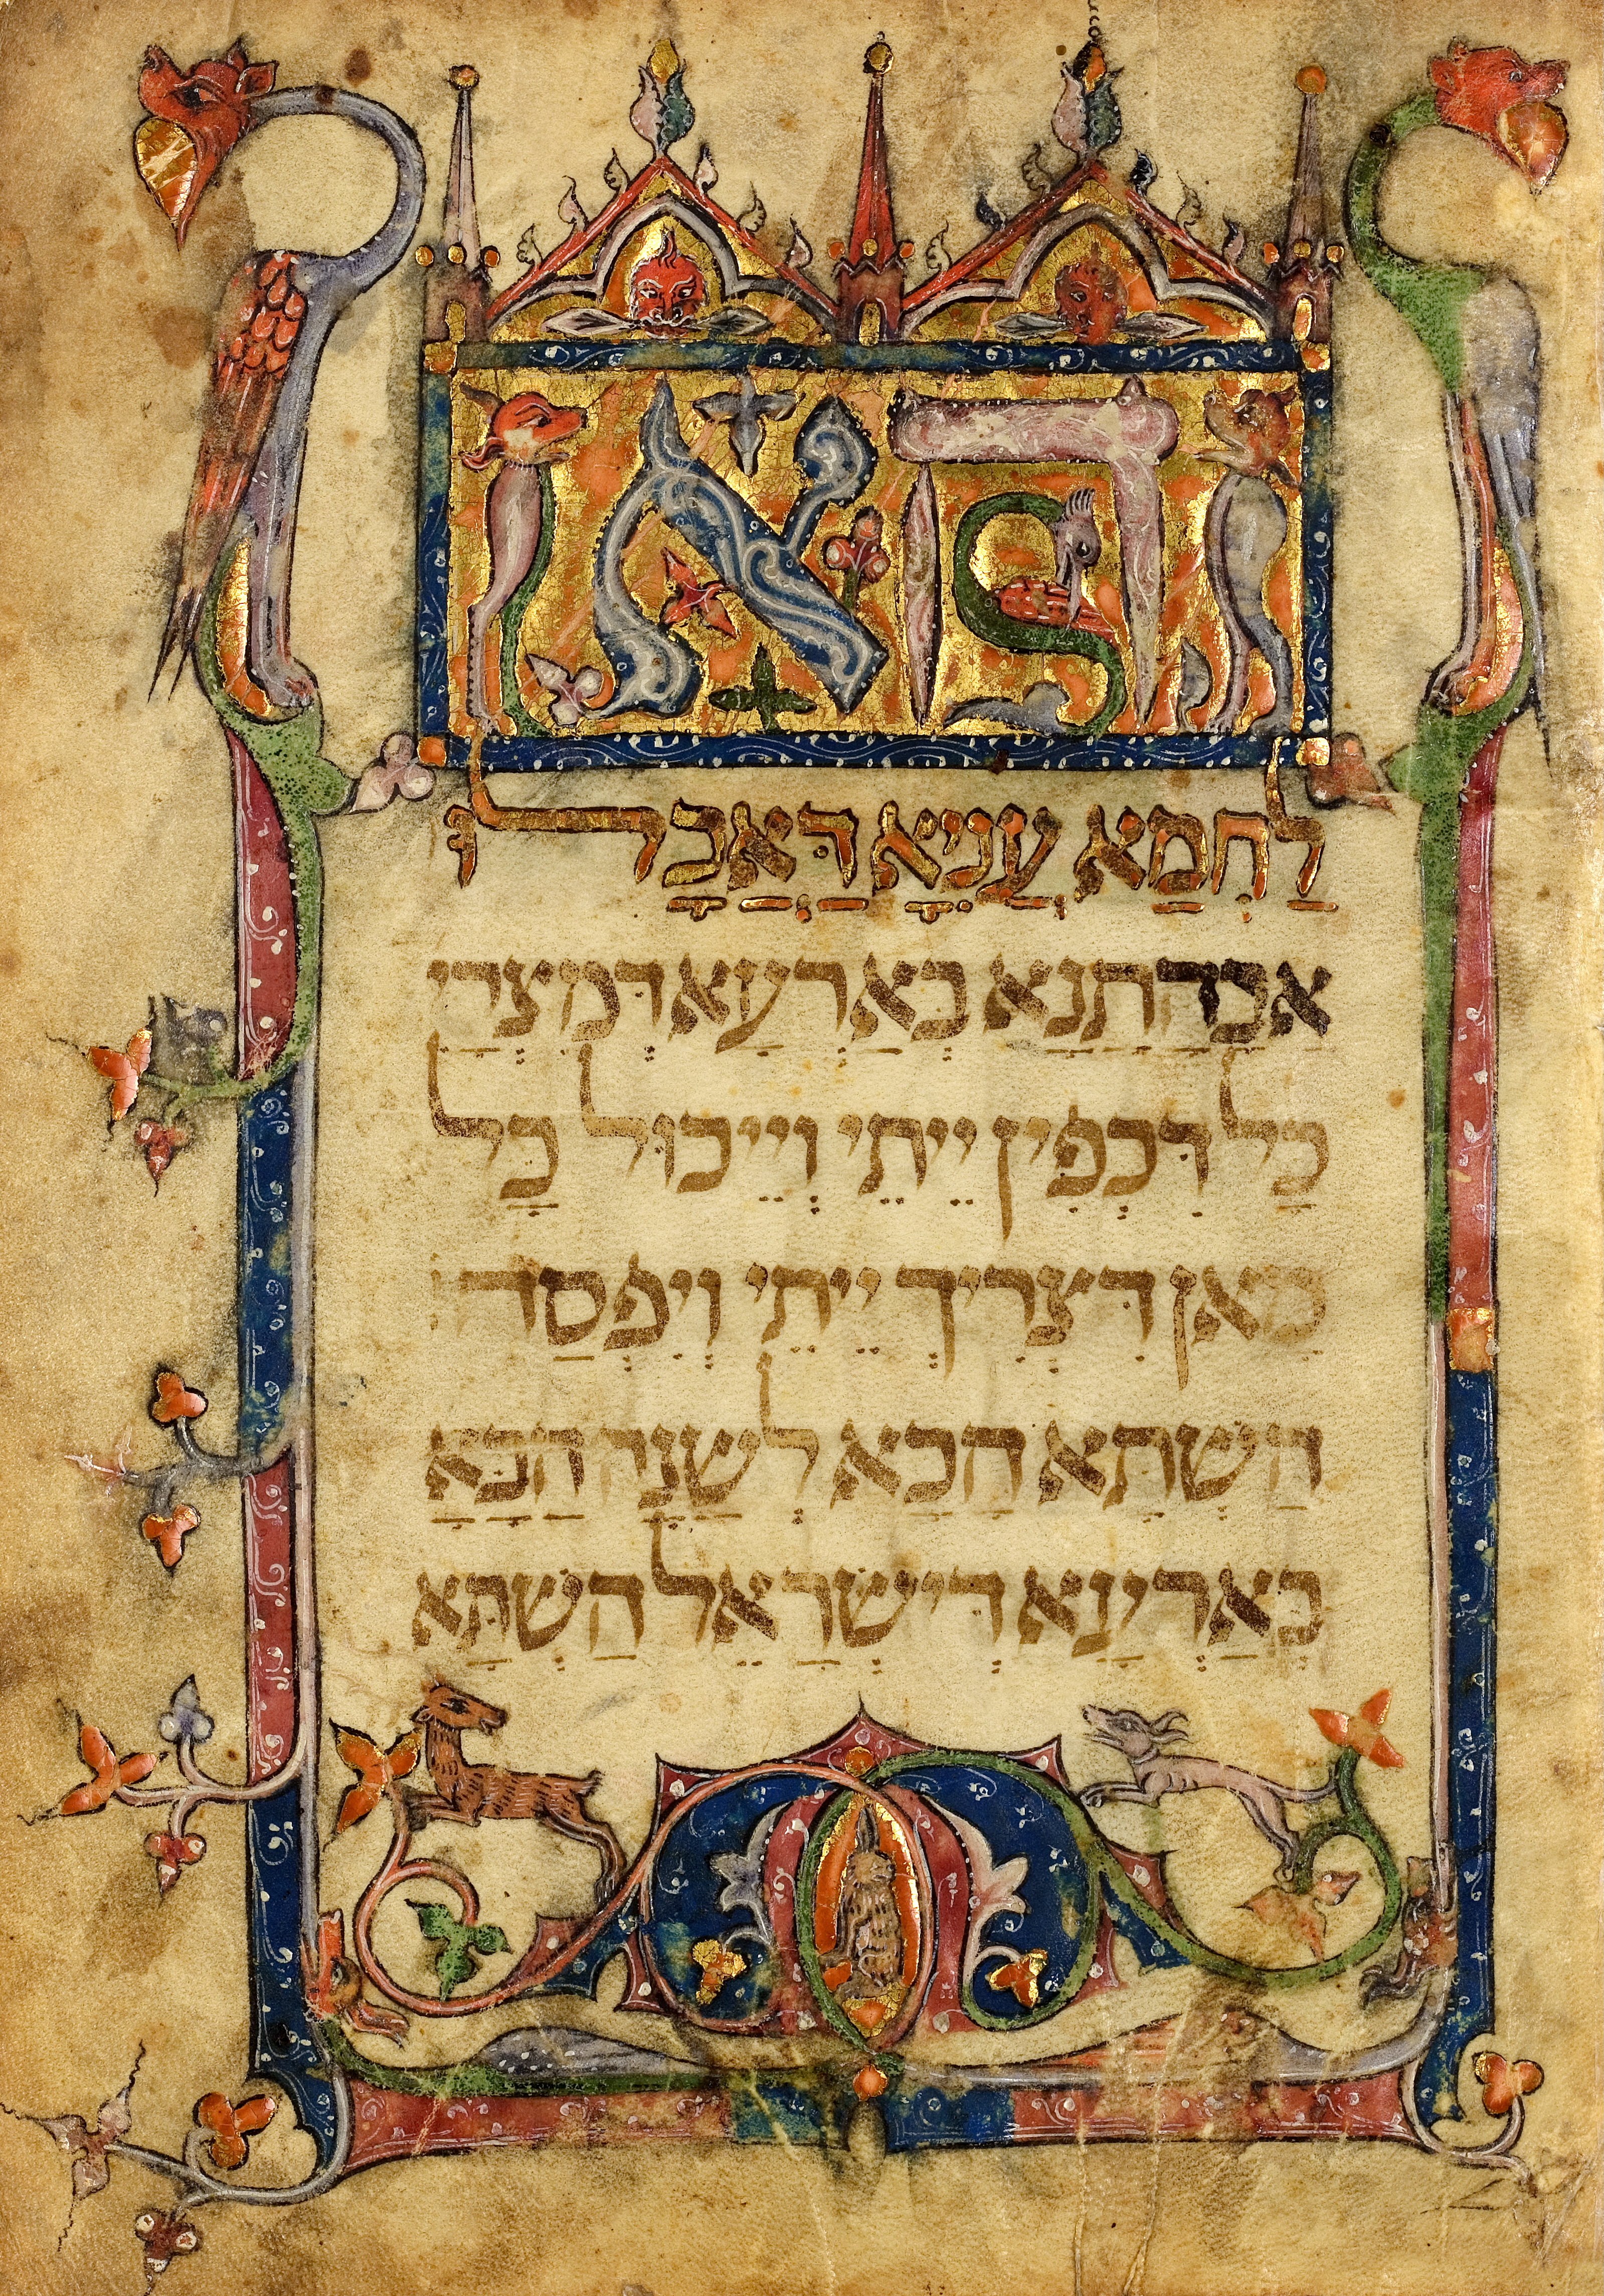 הא
לַחְמַא עֲנִיָא דַּאֲכָלוּ
אַבָהָתַנָא בְּאַרְעַא דְמִצְרָי
כָל דִּכְפִין יֵיתֵי וְיֵיכוּל כָל
מַאן דִּצְרִיךְ יֵיתֵי וְיִפְסַח
הַשַׁתָּא הַכָא לְשַׁנָה הַבָּאָ
בְּאַרְעָא דְיִשְׂרָאֵל הַשַׁתָּא